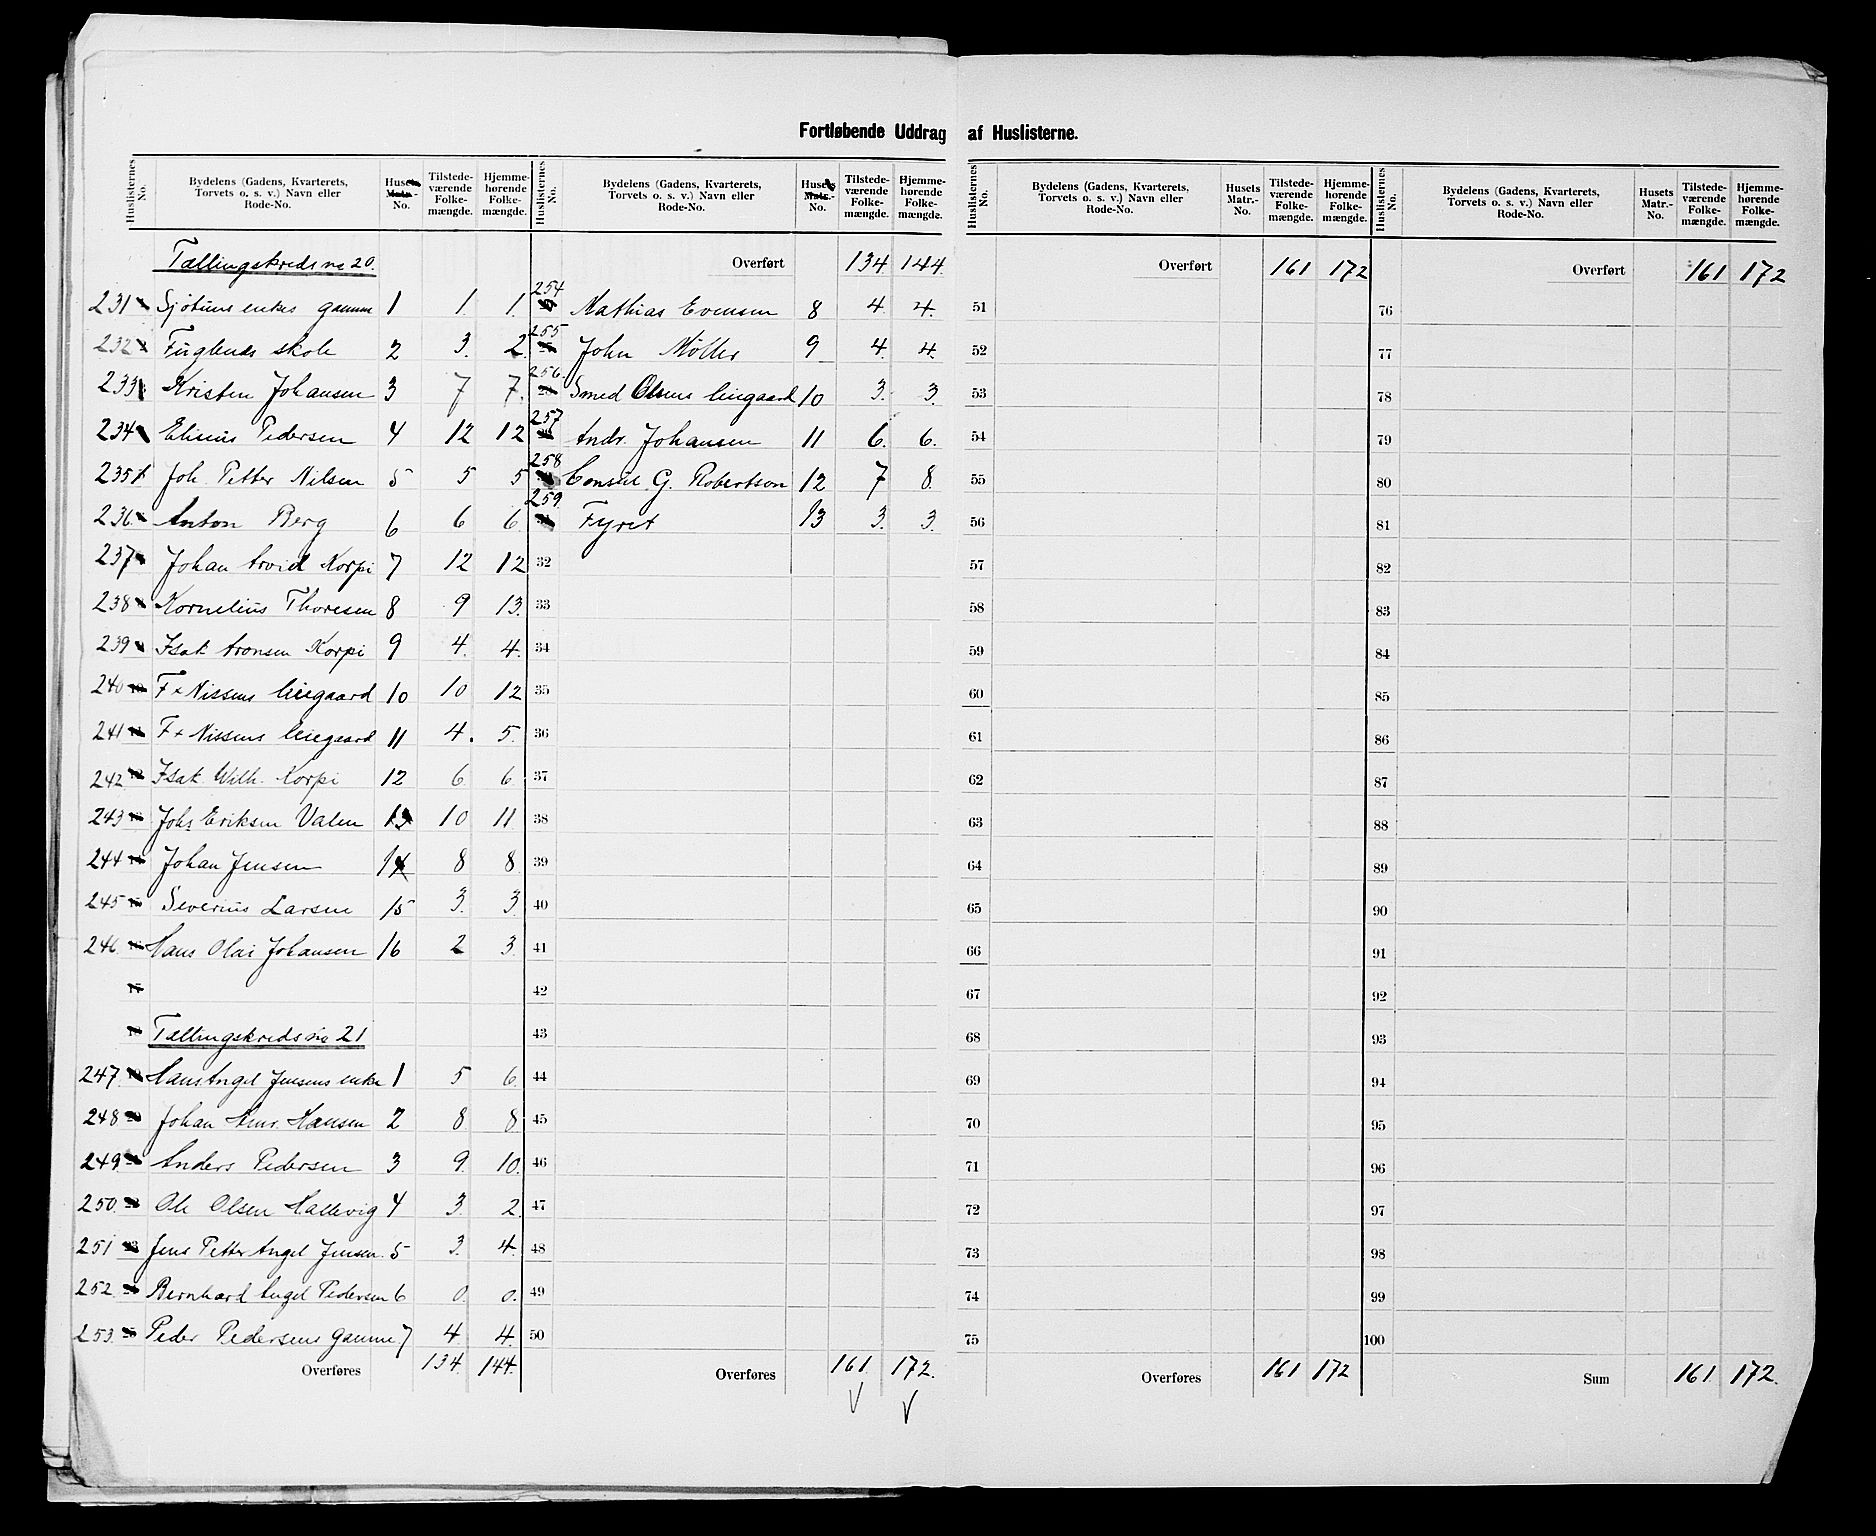 Fortløbende Uddrag af Huslisterne.
Huslisternes No. Bydelens (Gadens, Kvarterets, Torvets o. s. v.) Navn eller Rode-No. Husets Matr.-No. Tilstede-værende Folke-mængde. Hjemme-hørende Folke-mængde.
Tællingskreds no 20.
231 Sjötuns enkes gamme 1 1. 1.
232 Fuglenæs skole 2 3. 2.
233 Kristen Johansen 3 7 7.
234 Eliseus Pedersen 4 12 12
235 Joh. Petter Nilsen 5 5 5
236 Anton Berg 6 6 6.
237 Johan Arvid Korpi 7 12 12
238 Kornelius Thoresen 8 9 13.
239 Isak Aronsen Korpi 9 4. 4.
240 F. Nissens leiegaard 10 10 12
241 F. Nissens leiegaard 11 4. 5.
242 Isak Wilh. Korpi 12 6 6
243 Johs Eriksen Valen 13 10 11
244 Johan Jensen 14 8 8
245 Severius Larsen 15 3. 3
246 Hans Olai Johansen 16 2 3.
17
18 Tællingskreds no 21
247. Hans Angel Jensens enke 1 5 6.
248 Johan Hmr. Hansen 2 8 8
249. Anders Pedersen 3 9. 10.
250. Ole Olsen Hallevig 4 3. 2.
251 Jens Petter Angel Jensen. 5 3. 4.
252. Bernhard Angel Pedersen 6 0. 0.
253. Peder Pedersens gamme 7 4. 4.
Overføres 134. 144.
Huslisternes No. Bydelens (Gadens, Kvarterets, Torvets o. s. v.) Navn eller Rode-No. Husets Matr.-No. Tilstede-værende Folke-mængde. Hjemme-hørende Folke-mængde.
Overført 134 144.
254 Mathias Evensen 8 4. 4.
255 John Møller 9 4. 4.
256. Smed Olsens leiegaard 10 3. 3.
257 Andr. Johansen 11 6. 6.
258 Consul G. Robertson 12 7 8.
259. Fyret 13 3. 3.
32
33
34
35
36
37
38
39
40
41
42
43
44
45
46
47
48
49
50
Overføres 161. 172.
V V
Huslisternes No. Bydelens (Gadens, Kvarterets, Torvets o. s. v.) Navn eller Rode-No. Husets Matr.-No. Tilstede-værende Folke-mængde. Hjemme-hørende Folke-mængde.
Overført 161 172
51
52
53
54
55
56
57
58
59
60
61
62
63
64
65
66
67
68
69
70
71
72
73
74
75
Overføres 161 172
Huslisternes No. Bydelens (Gadens, Kvarterets, Torvets o. s. v.) Navn eller Rode-No. Husets Matr.-No. Tilstede-værende Folke-mængde. Hjemme-hørende Folke-mængde.
Overført 161 172
76
77
78
79
80
81
82
83
84
85
86
87
88
89
90
91
92
93
94
95
96
97
98
99
100
Sum 161. 172.